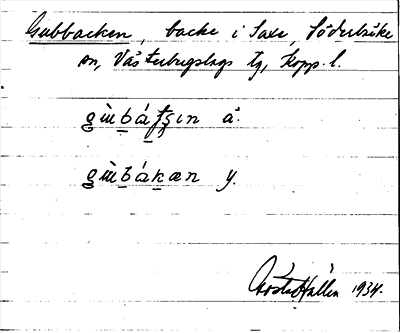 Gubbacken, backe i Saxe, Söderbärke
sn, Västerbergslags tg, Kopp. l.
gùbátʂın ä.
gùbákæn y.
Gösta Hallén 1934.